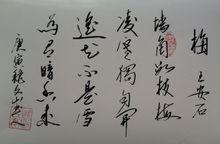 梅
王安石
墙角数枝梅
凌寒独自开
遥知不是雪
为有暗香来
庚寅